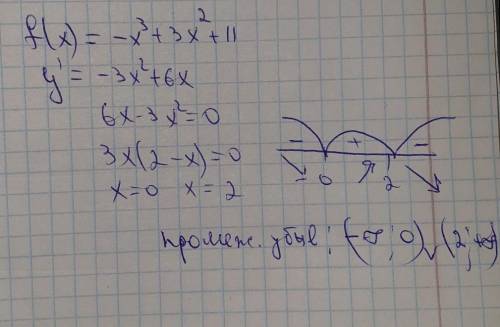 f(x) = -x³+3x²+11
y' = -3x²+6x
6x-3x²=0
3x(2-x)=0
x=0 x=2
- + -
0 2
промеж. убыв; (-∞; 0) ∪ (2; +∞)